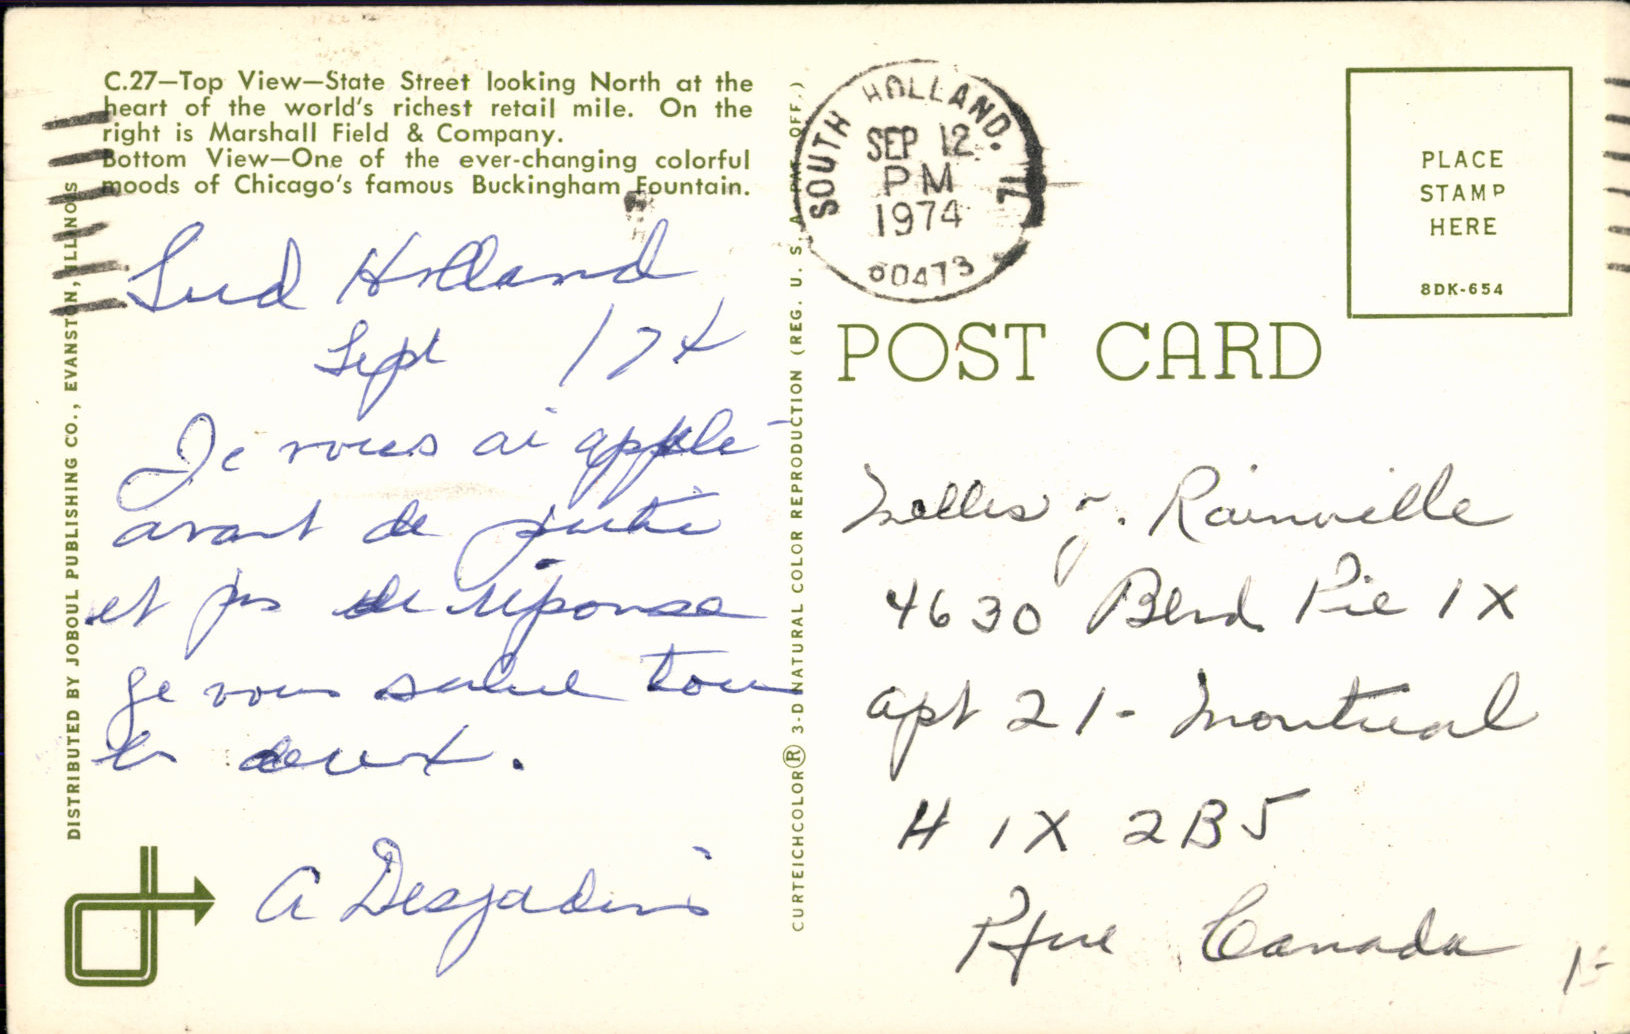 C.27—Top View—State Street looking North at the
heart of the world's richest retail mile. On the
right is Marshall Field & Company.
Bottom View—One of the ever-changing colorful
moods of Chicago's famous Buckingham Fountain.
Sud Holland
Sept 174
Je vous ai applé
avant de
et pas de réponse
Je vous salue tou
les deux.
A Desjadins
DISTRIBUTED BY JOBOUL PUBLISHING CO., EVANSTON, ILLINOIS
CURTEICHCOLOR® 3-D NATURAL COLOR REPRODUCTION (REG. U. S. A. PAT. OFF.)
SOUTH HOLLAND, IL
SEP 12
PM
1974
60473
PLACE
STAMP
HERE
8DK-654
POST CARD
Rainville
4630 Blvd Pie IX
apt 21- Montreal
H 1X 2B5
Canada